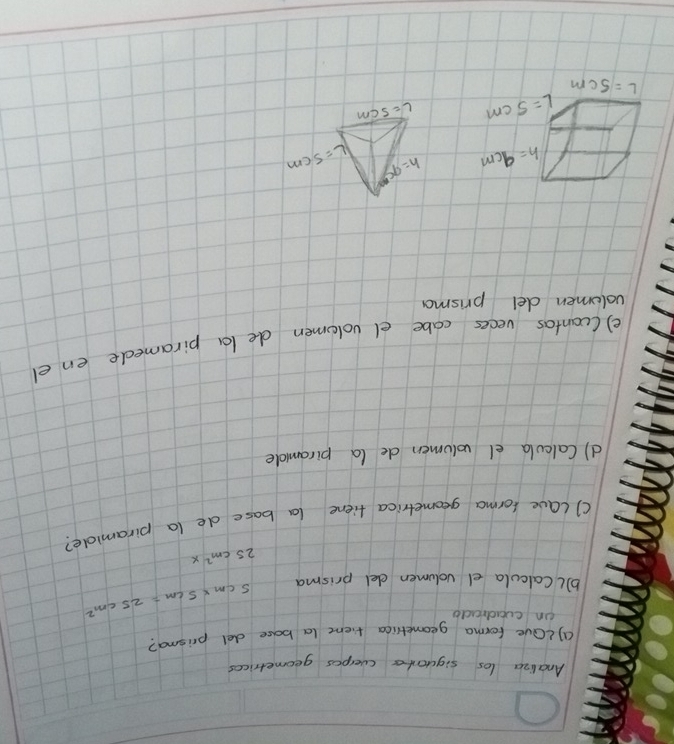 Analiza los siguientes cuerpos geometricos
a) ¿Que forma geometrica tiene la base del prisma?
un cuadrado
b) ¿Calcula el volumen del prisma 5 cm x 5 cm = 25 cm²
25 cm² x
c) ¿Que forma geometrica tiene la base de la piramide?
d) Calcula el volumen de la piramide
e) Cuantas veces cabe el volumen de la piramede en el
volumen del prisma
h = 9cm
L = 5cm
L = 5cm
h = 9cm
L = 5cm
L = 5cm